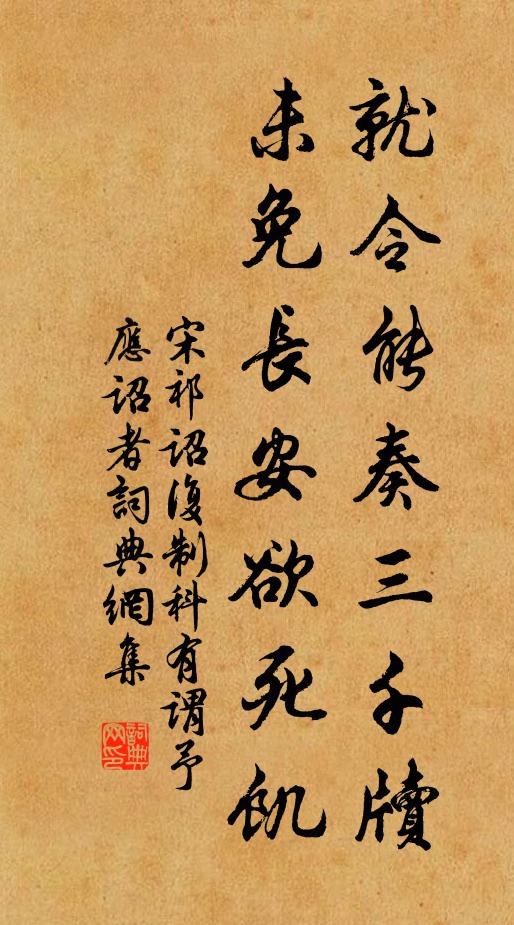 就令能奏三千牘
未免長安欲死飢
宋祁詔復制科有謂予
應詔者詞典網集
詞典網印